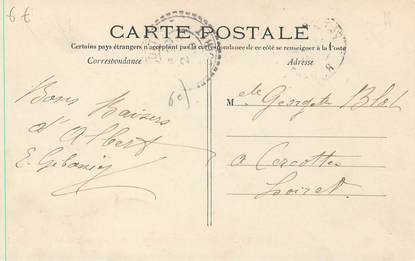 6 €
CARTE POSTALE
Certains pays étrangers n'acceptant pas la correspondance de ce côté se renseigner à la Poste
Correspondance
Adresse
Bons Baisers
d'Albert
E.
M elle Georgette
a Cercottes
Loiret